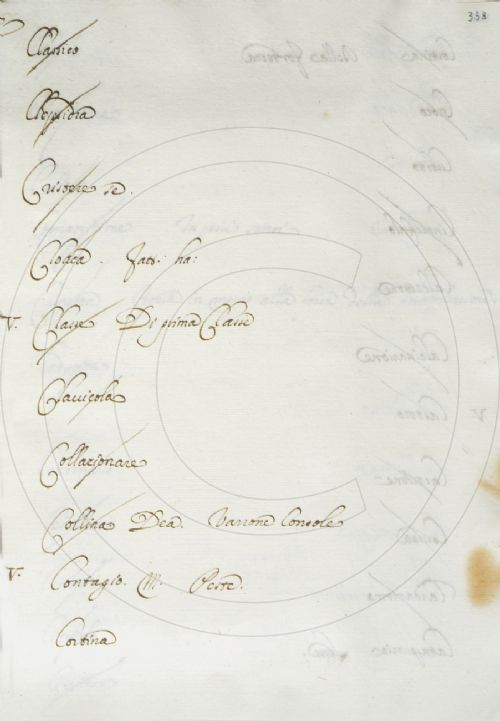 338
Classico
Clepsidra
Cloaca. Fatt. ha:
V. Classe Di prima Classe
Clavicola
Collazionare
Collina Dea. Varrone Console
V. Contagio. M. Peste.
Cortina